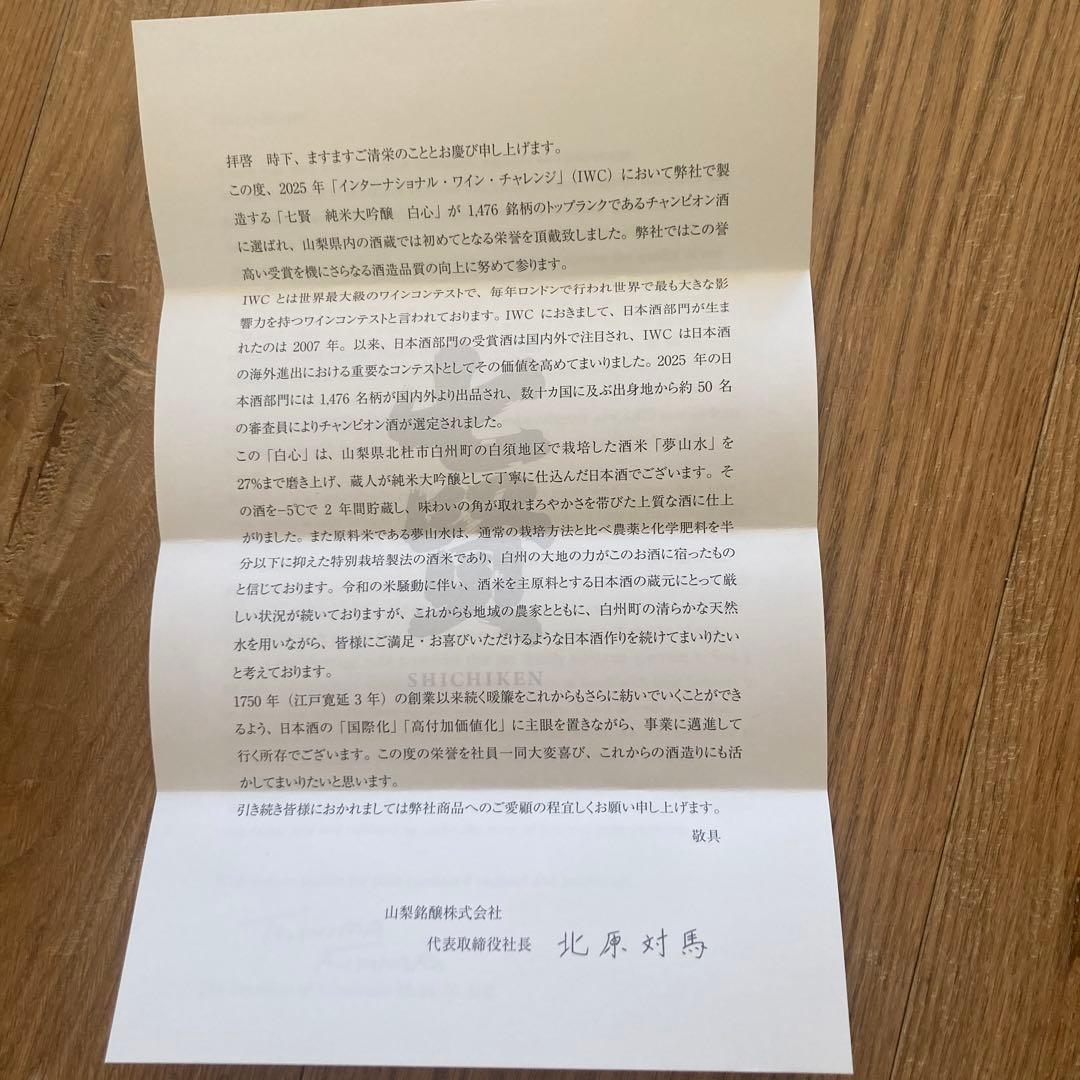 拝啓　時下、ますますご清栄のこととお慶び申し上げます。
この度、2025 年「インターナショナル・ワイン・チャレンジ」（IWC）において弊社で製
造する「七賢　純米大吟醸　白心」が 1,476 銘柄のトップランクであるチャンピオン酒
に選ばれ、山梨県内の酒蔵では初めてとなる栄誉を頂戴致しました。弊社ではこの誉
高い受賞を機にさらなる酒造品質の向上に努めて参ります。
IWC とは世界最大級のワインコンテストで、毎年ロンドンで行われ世界で最も大きな影
響力を持つワインコンテストと言われております。IWC におきまして、日本酒部門が生ま
れたのは 2007 年。以来、日本酒部門の受賞酒は国内外で注目され、IWC は日本酒
の海外進出における重要なコンテストとしてその価値を高めてまいりました。2025 年の日
本酒部門には 1,476 名柄が国内外より出品され、数十カ国に及ぶ出身地から約 50 名
の審査員によりチャンピオン酒が選定されました。
この「白心」は、山梨県北杜市白州町の白須地区で栽培した酒米「夢山水」を
27%まで磨き上げ、蔵人が純米大吟醸として丁寧に仕込んだ日本酒でございます。そ
の酒を−5℃で 2 年間貯蔵し、味わいの角が取れまろやかさを帯びた上質な酒に仕上
がりました。また原料米である夢山水は、通常の栽培方法と比べ農薬と化学肥料を半
分以下に抑えた特別栽培製法の酒米であり、白州の大地の力がこのお酒に宿ったもの
と信じております。令和の米騒動に伴い、酒米を主原料とする日本酒の蔵元にとって厳
しい状況が続いておりますが、これからも地域の農家とともに、白州町の清らかな天然
水を用いながら、皆様にご満足・お喜びいただけるような日本酒作りを続けてまいりたい
と考えております。
SHICHIKEN
1750 年（江戸寛延 3 年）の創業以来続く暖簾をこれからもさらに紡いでいくことができ
るよう、日本酒の「国際化」「高付加価値化」に主眼を置きながら、事業に邁進して
行く所存でございます。この度の栄誉を社員一同大変喜び、これからの酒造りにも活
かしてまいりたいと思います。
引き続き皆様におかれましては弊社商品へのご愛顧の程宜しくお願い申し上げます。
敬具
山梨銘醸株式会社
代表取締役社長　北原対馬